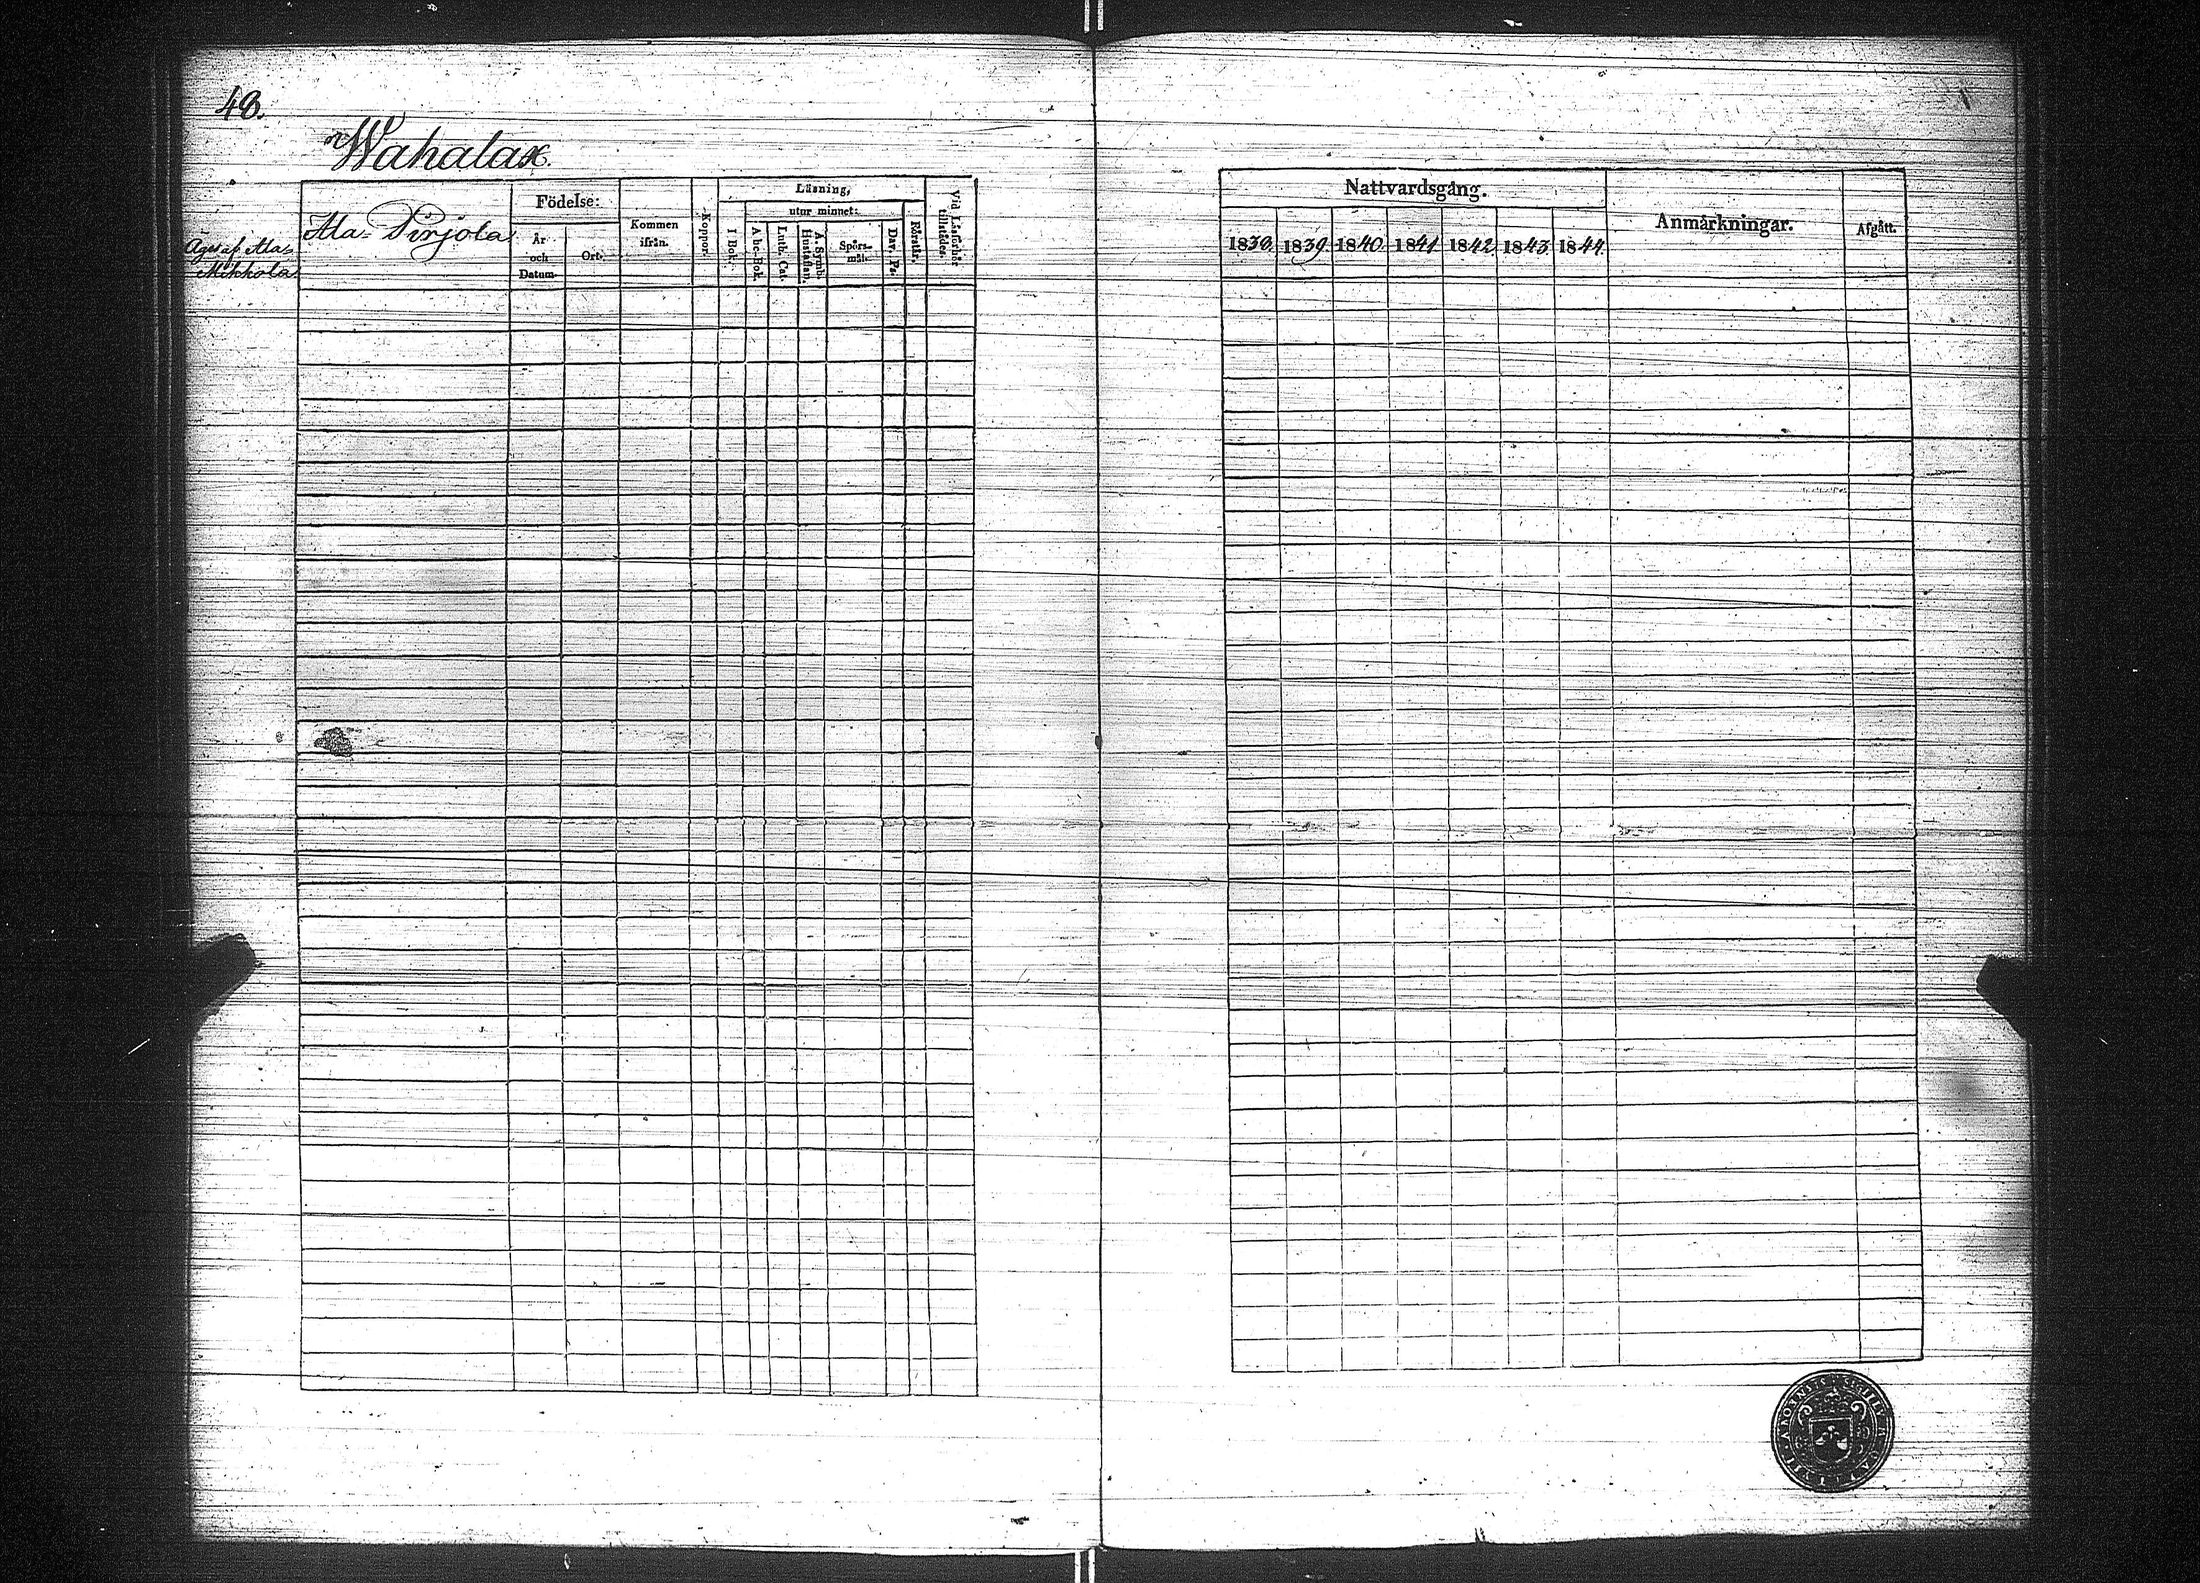 48.
Wahalax.
Ala-Pirjola
Äges af Ala-
Mikkola
Födelse:
År
och
Datum.
Ort.
Kommen
ifrån.
Koppor.
Läsning,
utur minnet:
I Bok.
A bc-Bok.
Luth. Cat.
A. Symb.
Hustaflan.
Spörs-
mål.
Dav. Ps.
Förstår.
Vid Läsförhör
tillstädes.
Nattvardsgång.
1838. 1839. 1840. 1841. 1842. 1843. 1844.
Anmärkningar.
Afgått.